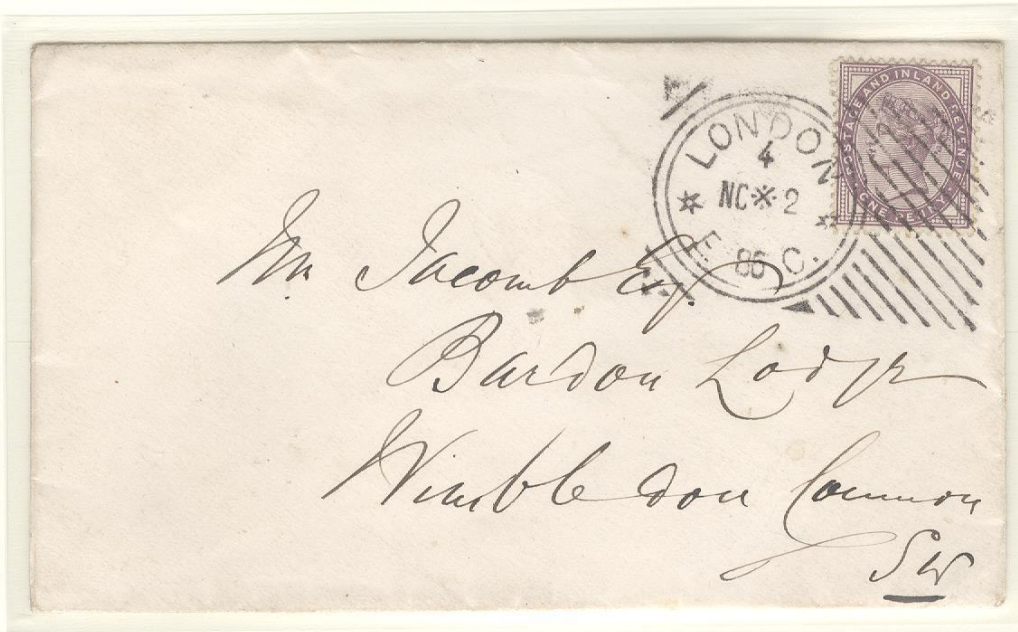 LONDON
4
NC※2
86
E. C.
POSTAGE AND INLAND REVENUE
ONE PENNY
Jacomb Esq.
Bardon Lodge
Wimbledon Common
SW